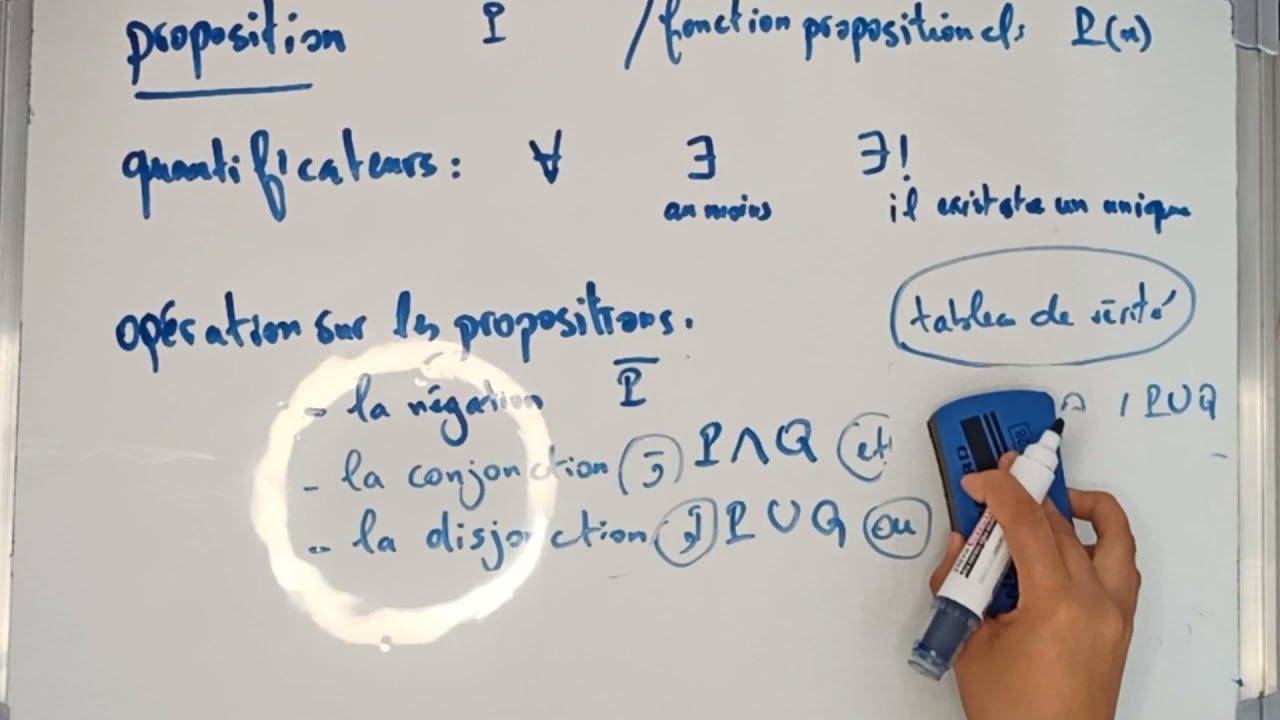 proposition P / fonction propositionels P(x)
quantificateurs : ∀ ∃ ∃!
au moins il existste un unique
opération sur les propositions.
tableau de vérité
- la négation P̅
| P∪Q
- la conjonction (و) P∧Q (et)
- la disjonction (أو) P∪Q (ou)